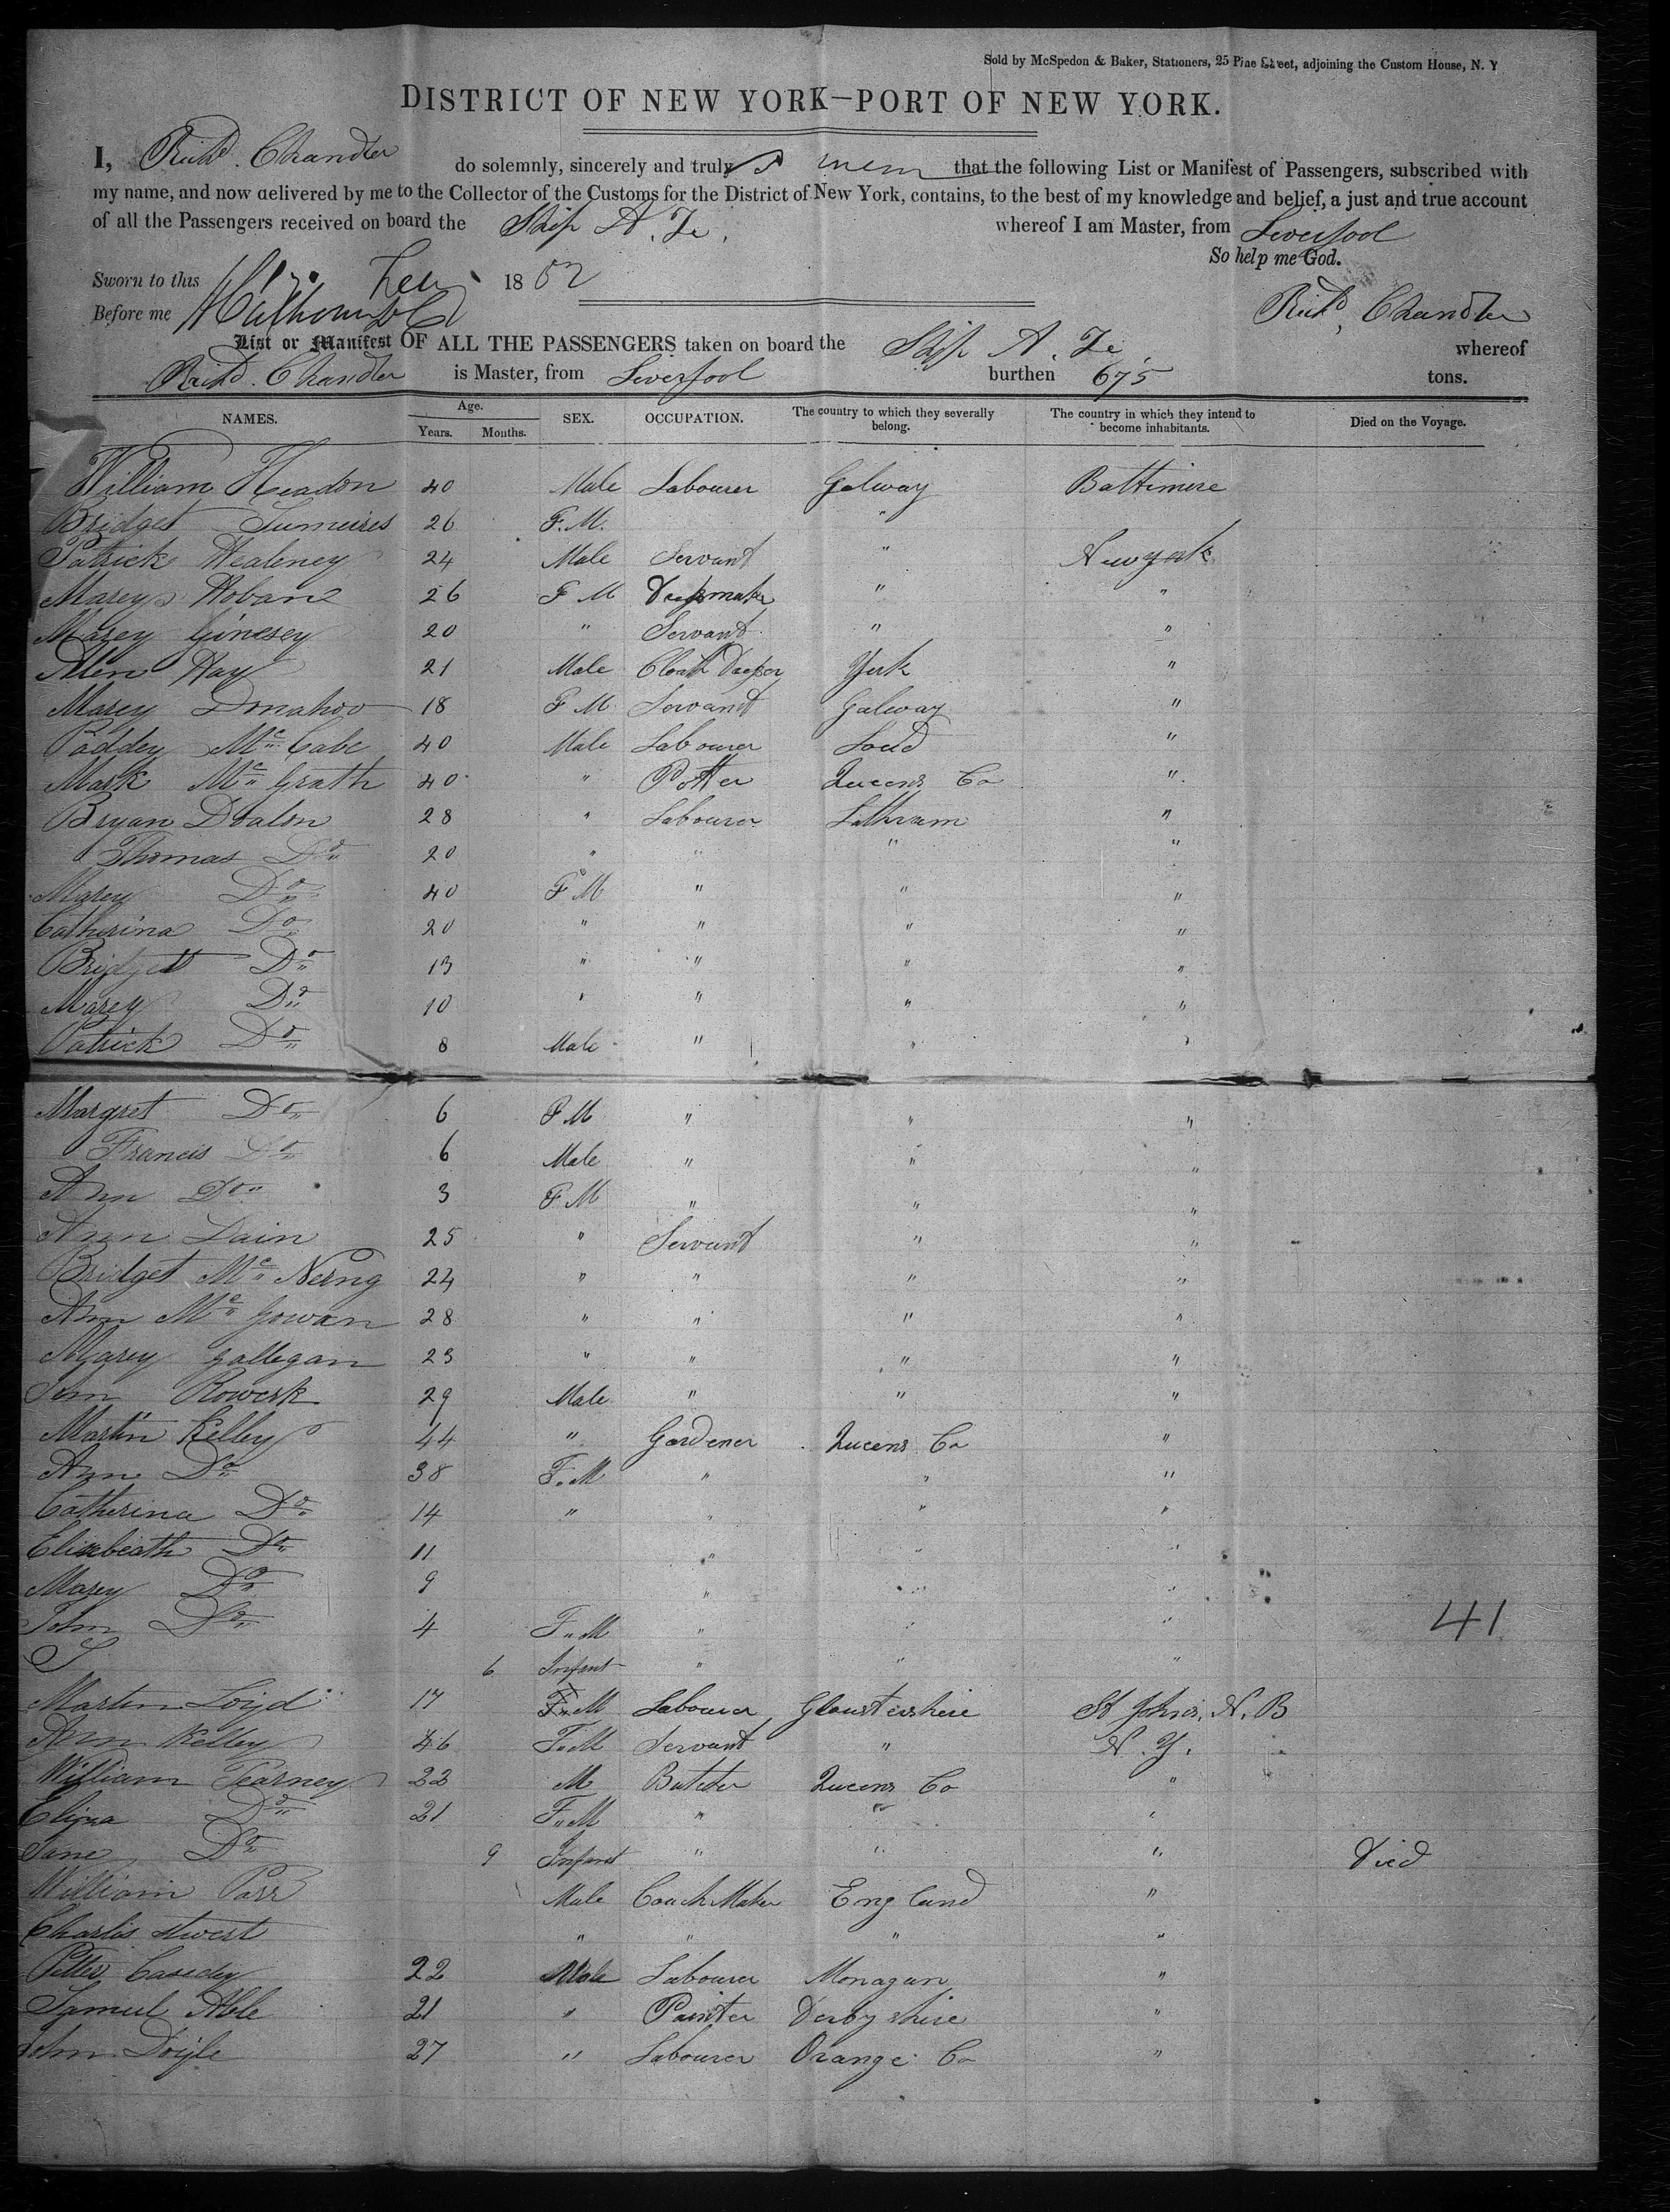 Sold by McSpedon & Baker, Stationers, 25 Pine Street, adjoining the Custom House, N. Y
DISTRICT OF NEW YORK—PORT OF NEW YORK.
I, Richd. Chandler do solemnly, sincerely and truly that the following List or Manifest of Passengers, subscribed with
my name, and now delivered by me to the Collector of the Customs for the District of New York, contains, to the best of my knowledge and belief, a just and true account
of all the Passengers received on board the Ship A. Ze. whereof I am Master, from Liverpool
So help me God.
Sworn to this 1852
Before me Richd. Chandler
List or Manifest OF ALL THE PASSENGERS taken on board the Ship A. Ze. whereof
Richd. Chandler is Master, from Liverpool burthen 675 tons.
NAMES. Age. Years. Months. SEX. OCCUPATION. The country to which they severally belong. The country in which they intend to become inhabitants. Died on the Voyage.
William Headon 40 Male Labourer Galway Baltimire
Bridget 26 F.M. "
Patrick Healeney 24 Male Servant " New york
Marey Hoban 26 F M Dressmaker " "
Marey Ginesey 20 " Servant " "
Allen Hay 21 Male Cloath Draper York "
Marey Donahoo 18 F M Servant Galway "
Paddey Mc Cabe 40 Male Labourer Loud "
Mark Mc Grath 40 " Potter Queens Co "
Bryan Doalon 28 " Labourer Lathram "
Thomas Do 20 " " " "
Marey Do 40 F M " " "
Catherina Do 20 " " " "
Bridgett Do 13 " " " "
Marey Do 10 " " " "
Patrick Do 8 Male " " "
Margret Do 6 F M " " "
Francis Do 6 Male " " "
Ann Do 3 F M " " "
Ann Dain 25 " Servant " "
Bridget Mc Nerng 24 " " " "
Ann Mc Gowan 28 " " " "
Marey Gallegan 23 " " " "
Rowerk 29 Male " " "
Martin Kelley 44 " Gardener Queens Co "
Ann Do 38 F.M " " "
Catherina Do 14 " " " "
Elizabeath Do 11 " " "
Marey Do 9 " " "
John Do 4 F.M " " " 41
6 Infant " " "
Martin Loijd 17 F.M Labourer Gloustershire St Johns, N.B
Ann Kelley 46 F.M Servant " N.Y.
William Tearney 22 M Butcher Queens Co "
Elijza Do 21 F.M " " "
Jane Do 9 Infant " " " Died
William Parr Male Coach Maker England "
Charlis Stwert " " " "
Petter Casedey 22 Male Labourer Monagan "
Samuel Able 21 " Painter Derbyshire "
John Doijle 27 " Labourer Orange Co "